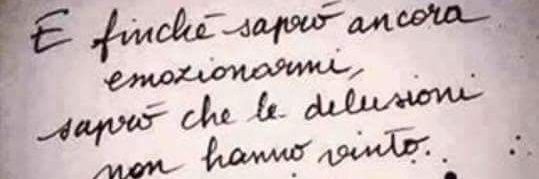 E finché saprò ancora
emozionarmi,
saprò che le delusioni
non hanno vinto..